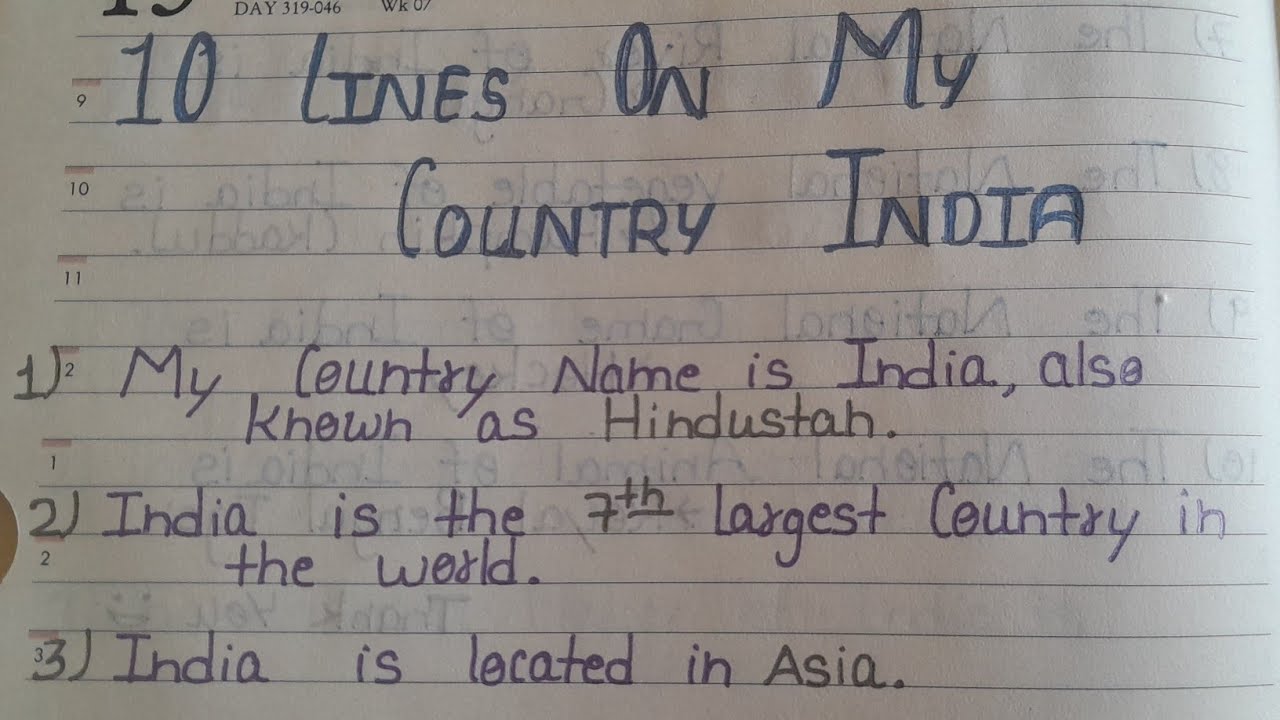 DAY 319-046 Wk 07
10 LINES ON MY
9
10
COUNTRY INDIA
11
1) 2 My Country Name is India, also
known as Hindustan.
1
2) India is the 7th largest Country in
2 the world.
3 3) India is located in Asia.